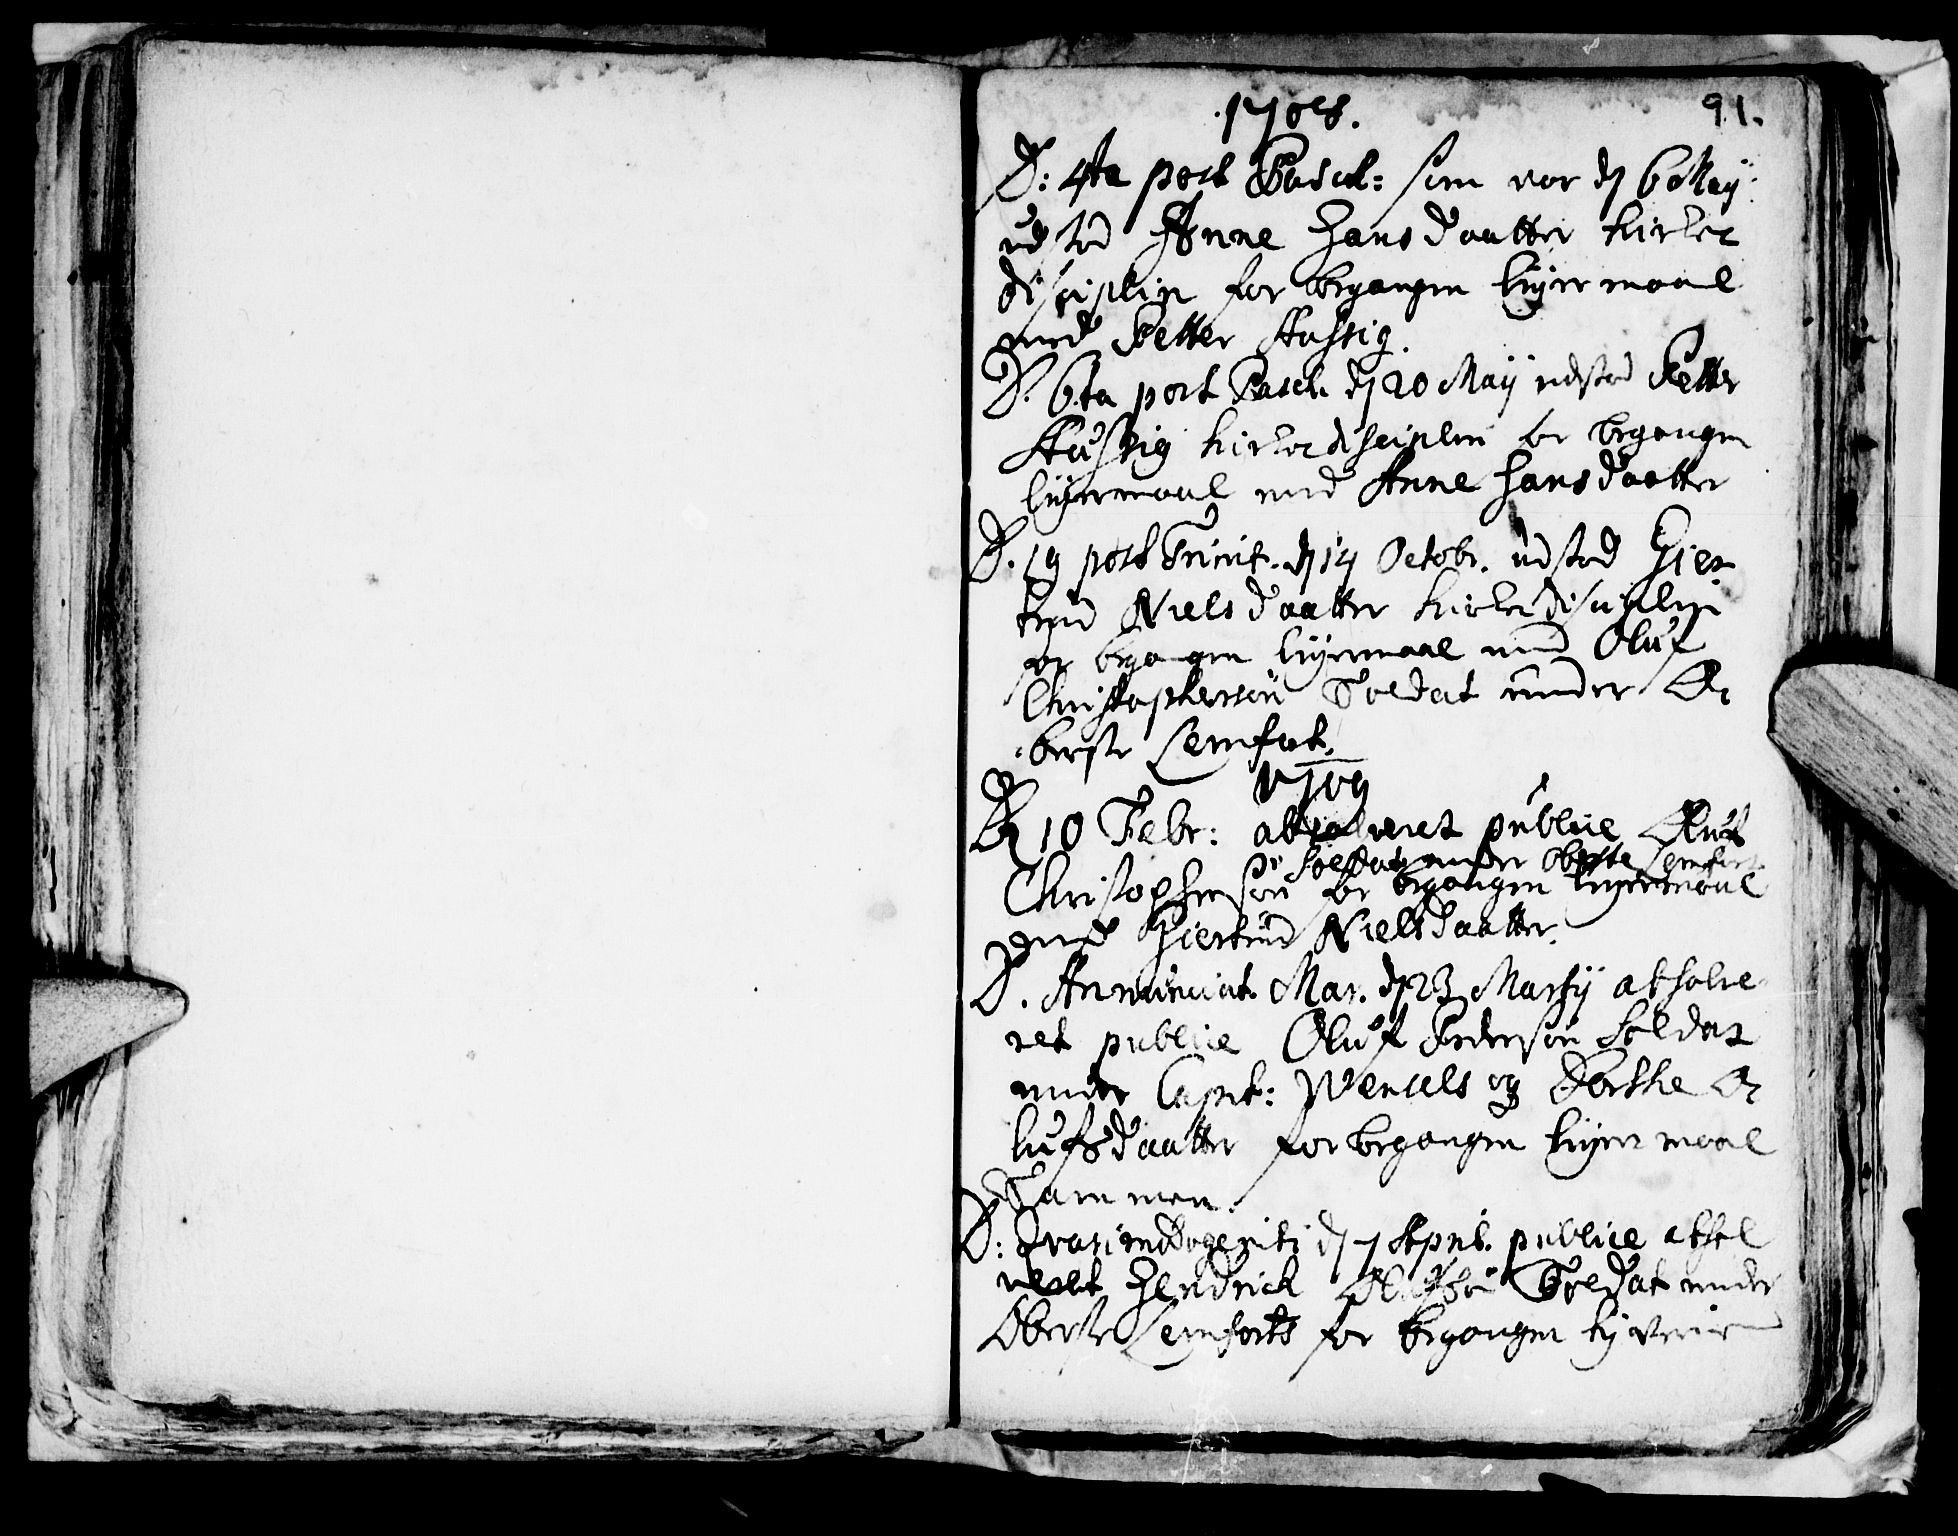 1708.
91.
D: 4ta post Pasch: som var dn 6 Maÿ
udstod Anne Hansdaatter kirkec
disciplin for begangen leÿermaal
med Petter Hustig.
D. 6.ta post Pasch. dn 20 Maÿ udstod Petter
Hustig kirkedisciplin for begangen
leÿermaal med Anne Hansdaatter
D. 19 post Trinit. dn 14 Octobr. udstod Gier
trud Nielsdaatter kirkedisciplin
for begangen leÿermaal med Oluf
Christophersøn Soldat under O
berste Lemfort.
1709
Dn 10 Febr: absolveret publice Oluf
Soldat under Oberste Lemfort
Christophersøn for begangen leÿermaal
med Giertrud Nielsdaatter.
D. Annunciat. Mar. dn 23 Martÿ absolve
ret publice Oluf Pedersøn Soldat
under Capit: Wencels og Dorthe O
lufsdaatter for begangen leÿermaal
Sammen.
D: Qvasimodogeniti dn 7 April. publice absol
veret Hendrick Olufsøn Soldat under
Oberste Lemforts for begangen tÿverie